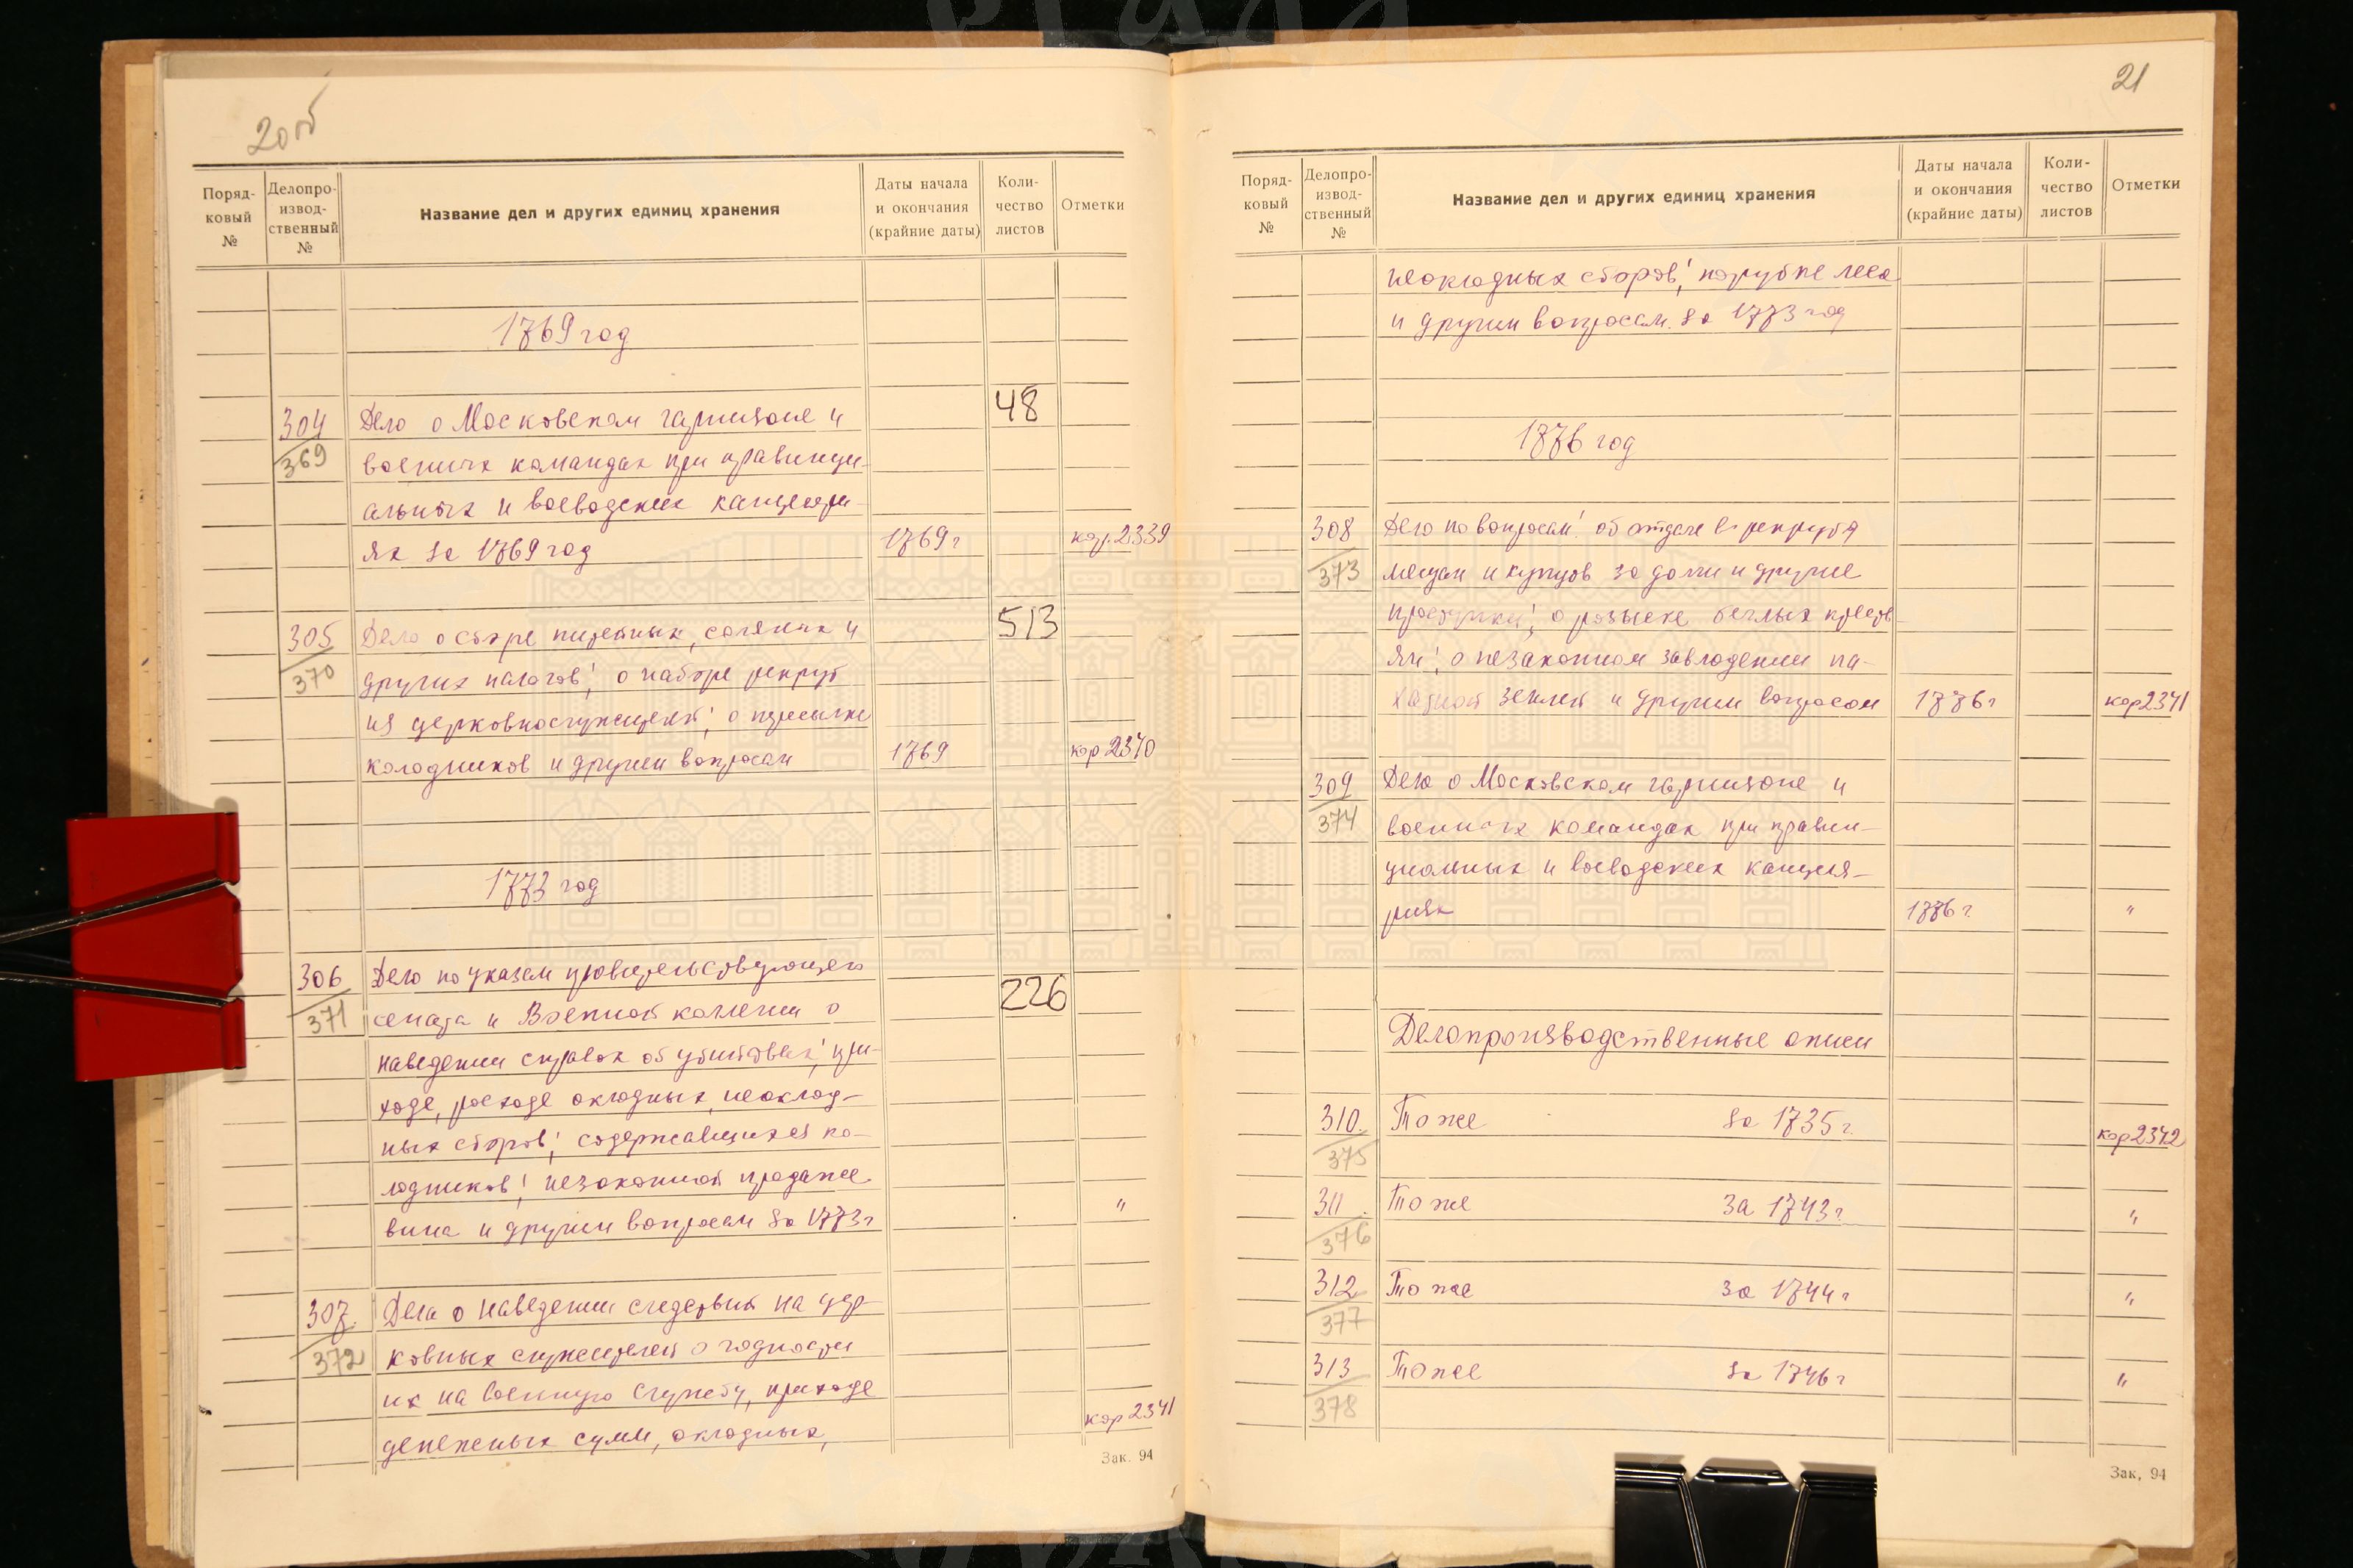 20об
Поряд-
ковый
№
Делопро-
извод-
ственный
№
Название дел и других единиц хранения
Даты начала
и окончания
(крайние даты)
Коли-
чество
листов
Отметки
1769 год
304
369
Дело о Московском гарнизоне и
48
военных командах при правинци-
альных и воеводских канцеляри-
ях за 1769 год
1769 г
кор. 2339
305
370
Дело о сборе питейных, соляных и
513
других налогов; о наборе рекрут
из церковнослужителей; о пересылке
колодников и другим вопросам
1769
кор 2340
1773 год
306
371
Дело по указам правительствующего
сената и Военной коллегии о
226
наведении справок об убийствах; при-
ходе, расходе окладных, неоклад-
ных сборов; содержавшихся ко-
лодников; незаконной продаже
вина и другим вопросам за 1773 г
"
307.
372
Дела о наведении следствий на цер-
ковных служителей о годности
их на военную службу, приходе
денежных сумм, окладных,
кор 2341
Зак. 94
21
Поряд-
ковый
№
Делопро-
извод-
ственный
№
Название дел и других единиц хранения
Даты начала
и окончания
(крайние даты)
Коли-
чество
листов
Отметки
неокладных сборов; порубке леса
и другим вопросам за 1773 год
1776 год
308
373
Дело по вопросам: об отдаче в рекруты
мещан и купцов за долги и другие
проступки; о розыске беглых крест
ян; о незаконном завладении па-
хатной землей и другим вопросам
1776 г
кор 2341
309
374
Дело о Московском гарнизоне и
военных командах при правин-
циальных и воеводских канцеля-
риях
1776 г
"
Делопроизводственные описи
310.
375
То же за 1735 г.
кор 2342
311.
376
То же за 1743 г
"
312
377
То же за 1744 г
"
313
378
То же за 1746 г
"
Зак. 94